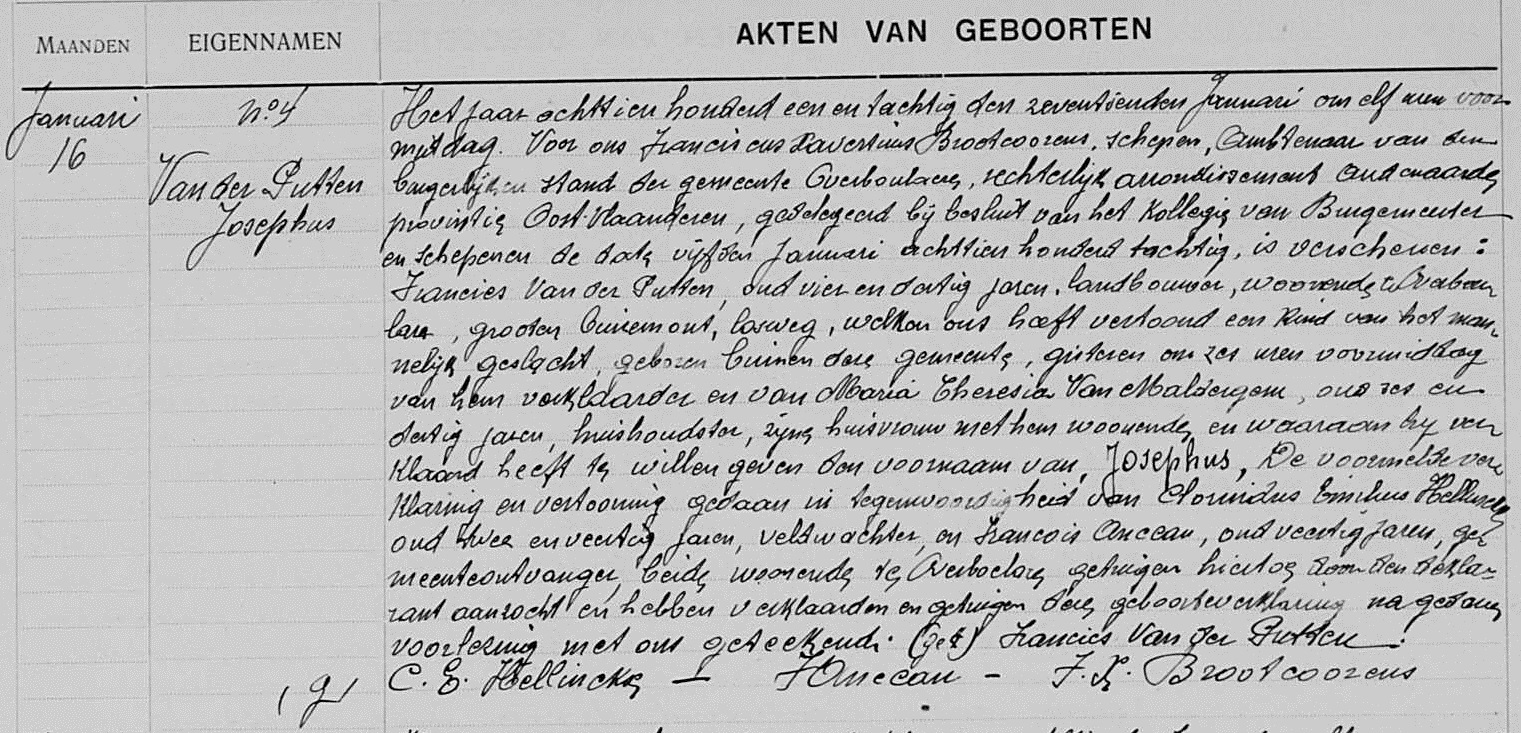 MAANDEN
EIGENNAMEN
AKTEN VAN GEBOORTEN
Januari
16
No 4
Van der Putten
Josephus
Het jaar achttien honderd een en tachtig den zeventienden Januari om elf uren voor
mitdag. Voor ons Franciscus Xaverius Brootcoorens, schepen, Ambtenaar van den
burgerlijken stand der gemeente Overboulaere, rechterlijk arrondissement Audenaarde,
provintie Oost-Vlaanderen, gedelegeerd bij besluit van het Kollegie van Burgemeester
en schepenen de date vijfden Januari achttien honderd tachtig, is verschenen :
Francies Van der Putten, oud vier en dertig jaren, landbouwer, woonende te Overbou
lare, grooten, losweg, welken ons heeft vertoond een kind van het man-
nelijk geslacht, geboren binnen deze gemeente, gisteren om zes uren voormiddag
van hem verklaarder en van Maria Theresia Van Malzergem, oud zes en
dertig jaren, huishoudster, zijne huisvrouw met hem woonende, en waaraan hij ver
klaard heeft te willen geven den voornaam van, Josephus, De voormelde ver
klaring en vertooning gedaan in tegenwoordigheid van Clorindus Emilius Hellinckx
oud twee en veertig jaren, veldwachter, en Francois Anceau, oud veertig jaren, ge
meenteontvanger, beide woonende te Overboelare, getuigen hiertoe door den dekla-
rant aanzocht en hebben verklaarder en getuigen deze geboorteverklaring na gedane
voorlezing met ons geteekend. (get) Francies Van der Putten.
C. E. Hellinckx — F Anceau — F. X. Brootcoorens